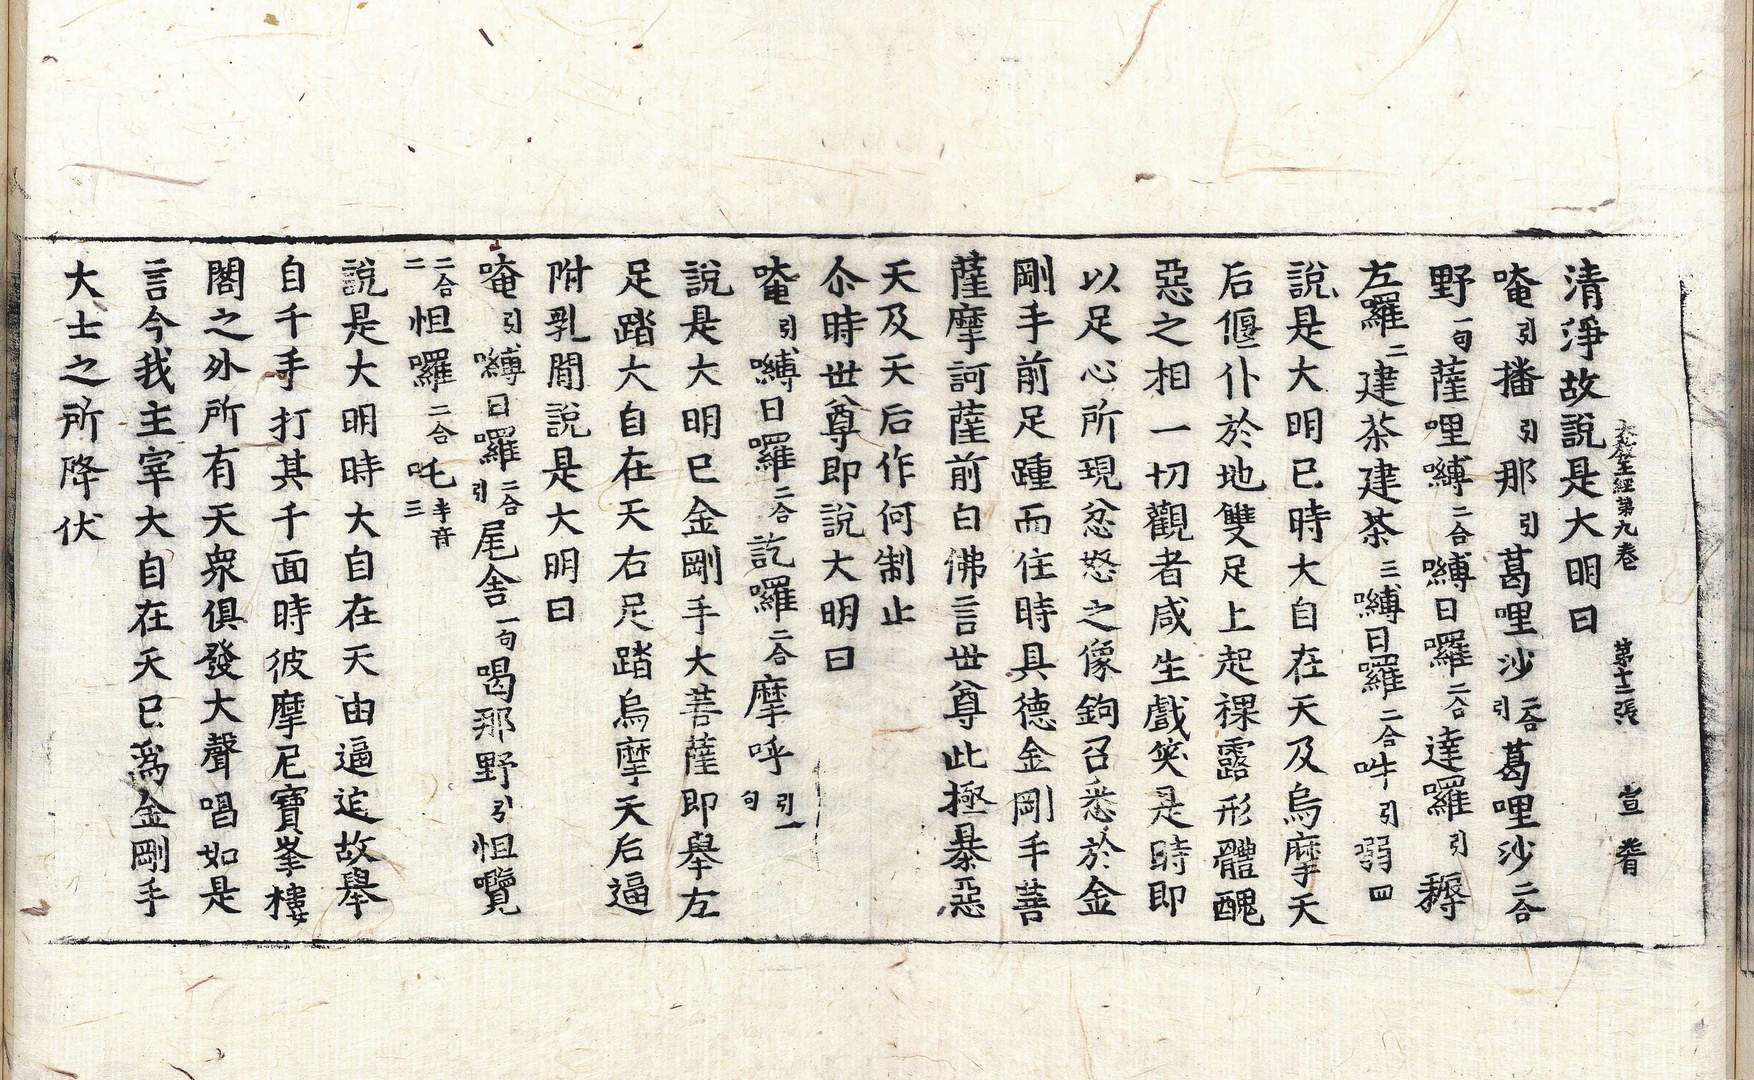 大教王經第九卷 第十二張 宣 眷
清淨故說是大明曰
唵引播引那引葛哩沙二合引葛哩沙二合
野一句薩哩嚩二合嚩日囉二合達囉引耨
左囉二建茶建茶三嚩日囉二合吽引弱四
說是大明已時大自在天及烏摩天
后偃仆於地雙足上起裸露形體醜
惡之相一切觀者咸生戲笑是時即
以足心所現忿怒之像鉤召悉於金
剛手前足踵而住時具德金剛手菩
薩摩訶薩前白佛言世尊此極暴惡
天及天后作何制止
尒時世尊即說大明曰
唵引嚩日囉二合訖囉二合摩呼引一句
說是大明已金剛手大菩薩即舉左
足踏大自在天右足踏烏摩天后逼
附乳間說是大明曰
唵引嚩日囉二合引尾舍一句喝那野引怛嚂
二合二怛囉二合吒半音三
說是大明時大自在天由逼迮故舉
自千手打其千面時彼摩尼寶峯樓
閣之外所有天衆俱發大聲唱如是
言今我主宰大自在天已爲金剛手
大士之所降伏